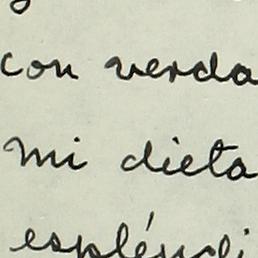 con verda
mi dieta
espléndi